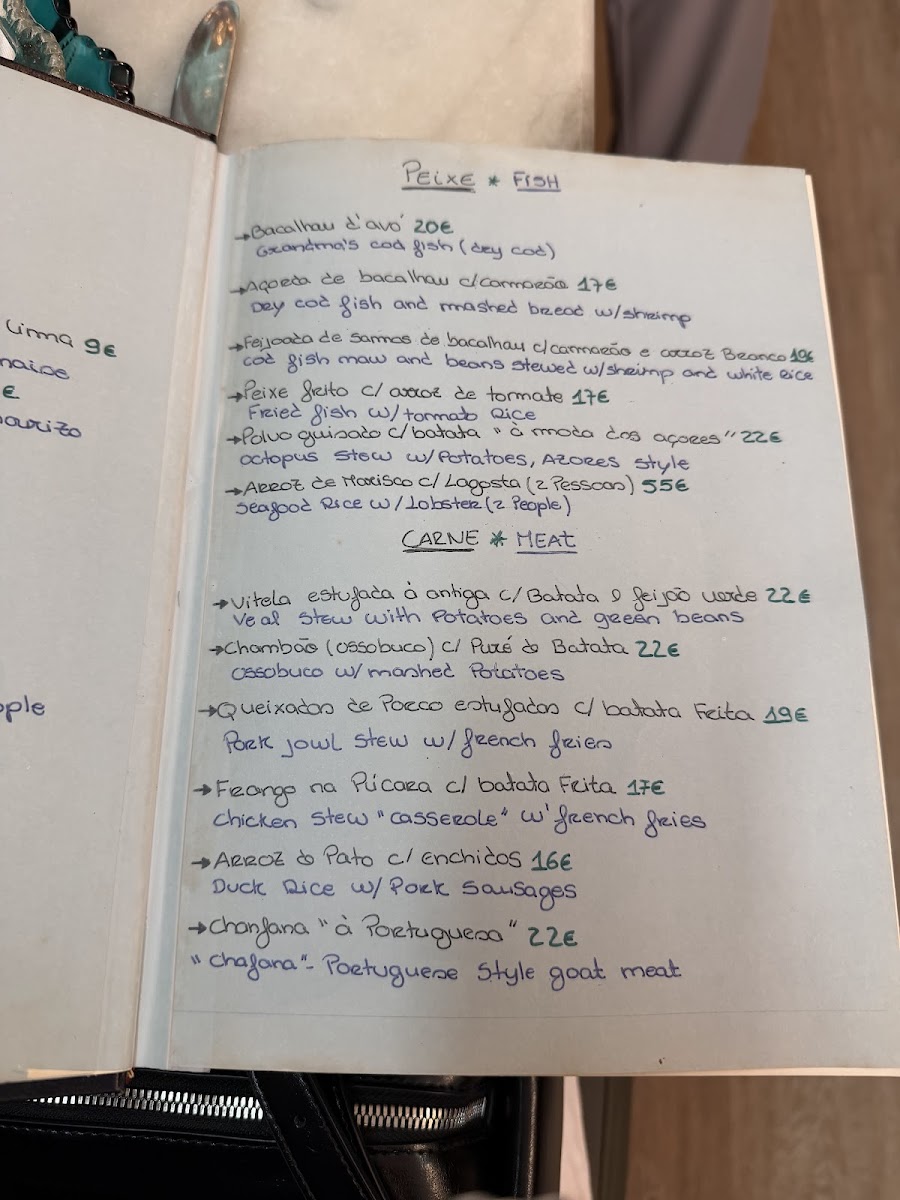 Lima 9€
naise
€
ourizo
ople
PEIXE * FISH
→Bacalhau d'avó 20€
Grandma's cod fish (dry cod)
→Açorda de bacalhau c/camarão 17€
Dry cod fish and mashed bread w/shrimp
→Feijoada de samos de bacalhau c/camarão e arroz Branco 19€
cod fish maw and beans stewed w/shrimp and white Rice
→Peixe frito c/ arroz de tomate 17€
Fried fish w/tomato Rice
→Polvo guisado c/batata "à moda dos açores" 22€
octopus stew w/Potatoes, Azores style
→ARROZ de Marisco c/Lagosta (2 Pessoas) 55€
Seafood Rice w/Lobster (2 People)
CARNE * MEAT
→Vitela estufada à antiga c/Batata e feijão verde 22€
Veal stew with Potatoes and green beans
→Chambão (ossobuco) c/ Puré de Batata 22€
ossobuco w/mashed Potatoes
→Queixadas de Porco estufadas c/ batata Frita 19€
Pork jowl stew w/french fries
→Frango na Púcara c/ batata Frita 17€
Chicken stew "casserole" w/ french fries
→ARROZ de Pato c/ enchidos 16€
Duck Rice w/ Pork Sausages
→Chanfana "à Portuguesa" 22€
"chafana"- Portuguese style goat meat